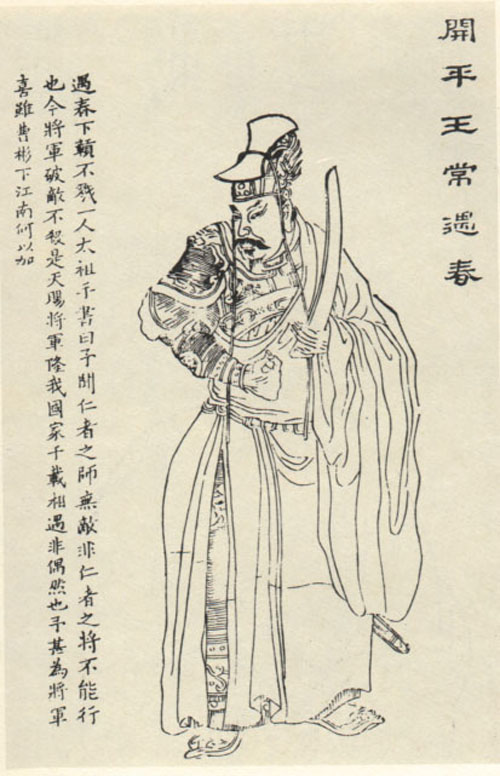 開平王常遇春
遇春下贛不戮一人太祖予書曰予聞仁者之師無敵非仁者之將不能行
也今將軍破敵不殺是天賜將軍隆我國家千載相遇非偶然也予甚為將軍
喜雖曹彬下江南何以加